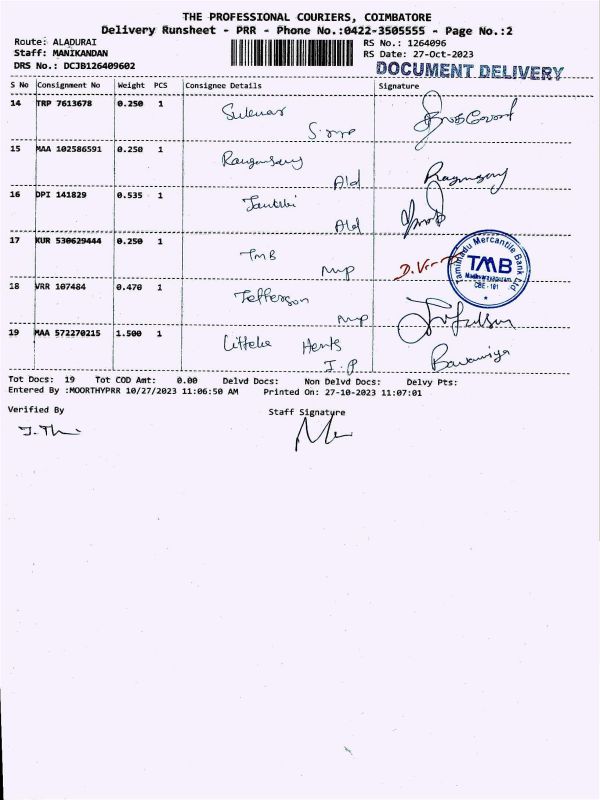 THE PROFESSIONAL COURIERS, COIMBATORE
Delivery Runsheet - PRR - Phone No.:0422-3505555 - Page No.:2
Route: ALADURAI
RS No.: 1264096
Staff: MANIKANDAN
RS Date: 27-Oct-2023
DRS No.: DCJB126409602
DOCUMENT DELIVERY
S No Consignment No Weight PCS Consignee Details Signature
14 TRP 7613678 0.250 1
15 MAA 102586591 0.250 1
Ald
16 DPI 141829 0.535 1
Ald
17 KUR 530629444 0.250 1 TMB
mp
Tamilnadu Mercantile Bank Ltd
TMB
CBE - 101
18 VRR 107484 0.470 1 Jefferson
mp
19 MAA 572270215 1.500 1
I.P
Tot Docs: 19 Tot COD Amt: 0.00 Delvd Docs: Non Delvd Docs: Delvy Pts:
Entered By :MOORTHYPRR 10/27/2023 11:06:50 AM Printed On: 27-10-2023 11:07:01
Verified By Staff Signature